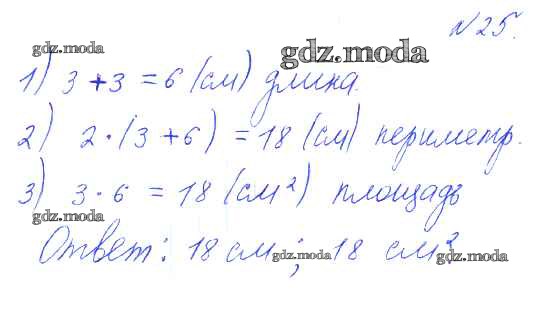 №25.
gdz.moda
gdz.moda
1) 3 + 3 = 6 (см) длина.
2) 2 · (3 + 6) = 18 (см) периметр.
3) 3 · 6 = 18 (см²) площадь
gdz.moda
Ответ: 18 см; 18 см².
gdz.moda
gdz.moda